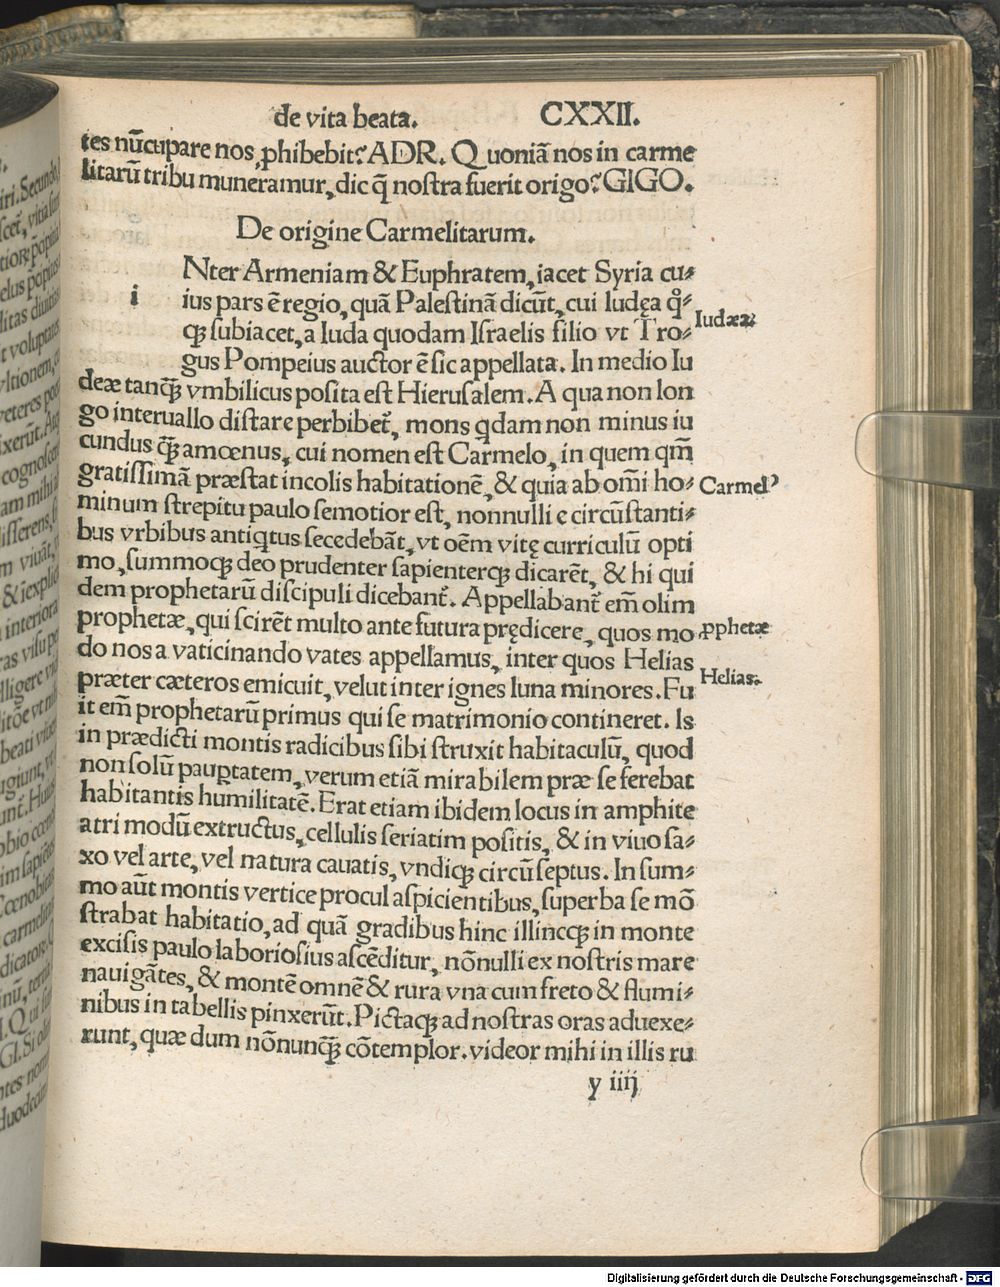 de vita beata. CXXII.
tes nūcupare nos ꝓhibebit? ADR. Quoniā nos in carme
litarū tribu muneramur, dic q̄ nostra fuerit origo? GIGO.
De origine Carmelitarum.
i
Nter Armeniam & Euphratem, iacet Syria cu-
ius pars ē regio, quā Palestinā dicūt, cui Iudęa q̊-
qꝫ subiacet, a Iuda quodam Israelis filio vt Tro-
gus Pompeius auctor ē sic appellata. In medio Iu
Iudæa.
deæ tanqꝫ̄ vmbilicus posita est Hierusalem. A qua non lon
go interuallo distare perhibet̄, mons qdam non minus iu
cundus qꝫ̄ amœnus, cui nomen est Carmelo, in quem qm̄
gratissimā præstat incolis habitationē, & quia ab om̄i ho-
Carmelꝰ
minum strepitu paulo semotior est, nonnulli e circūstanti-
bus vrbibus antiqtus secedebāt, vt oēm vitę curriculū opti
mo, summoqꝫ deo prudenter sapienterqꝫ dicarēt, & hi qui
dem prophetarū discipuli dicebant̄. Appellabant̄ em̄ olim
prophetæ, qui scirēt multo ante futura prędicere, quos mo
ꝓphetæ
do nos a vaticinando vates appellamus, inter quos Helias
Helias.
præter cæteros emicuit, velut inter ignes luna minores. Fu
it em̄ prophetarū primus qui se matrimonio contineret. Is
in prædicti montis radicibus sibi struxit habitaculū, quod
non solū paupꝑtatem, verum etiā mirabilem præ se ferebat
habitantis humilitatē. Erat etiam ibidem locus in amphite
atri modū extructus, cellulis seriatim positis, & in viuo sa-
xo vel arte, vel natura cauatis, vndiqꝫ circūseptus. In sum-
mo aūt montis vertice procul aspicientibus, superba se mō
strabat habitatio, ad quā gradibus hinc illincqꝫ in monte
excisis paulo laboriosius ascēditur, nōnulli ex nostris mare
nauigātes, & montē omnē & rura vna cum freto & flumi-
nibus in tabellis pinxerūt. Pictaqꝫ ad nostras oras aduexe-
runt, quæ dum nōnunqꝫ̄ cōtemplor. videor mihi in illis ru
y iiij
Digitalisierung gefördert durch die Deutsche Forschungsgemeinschaft - DFG